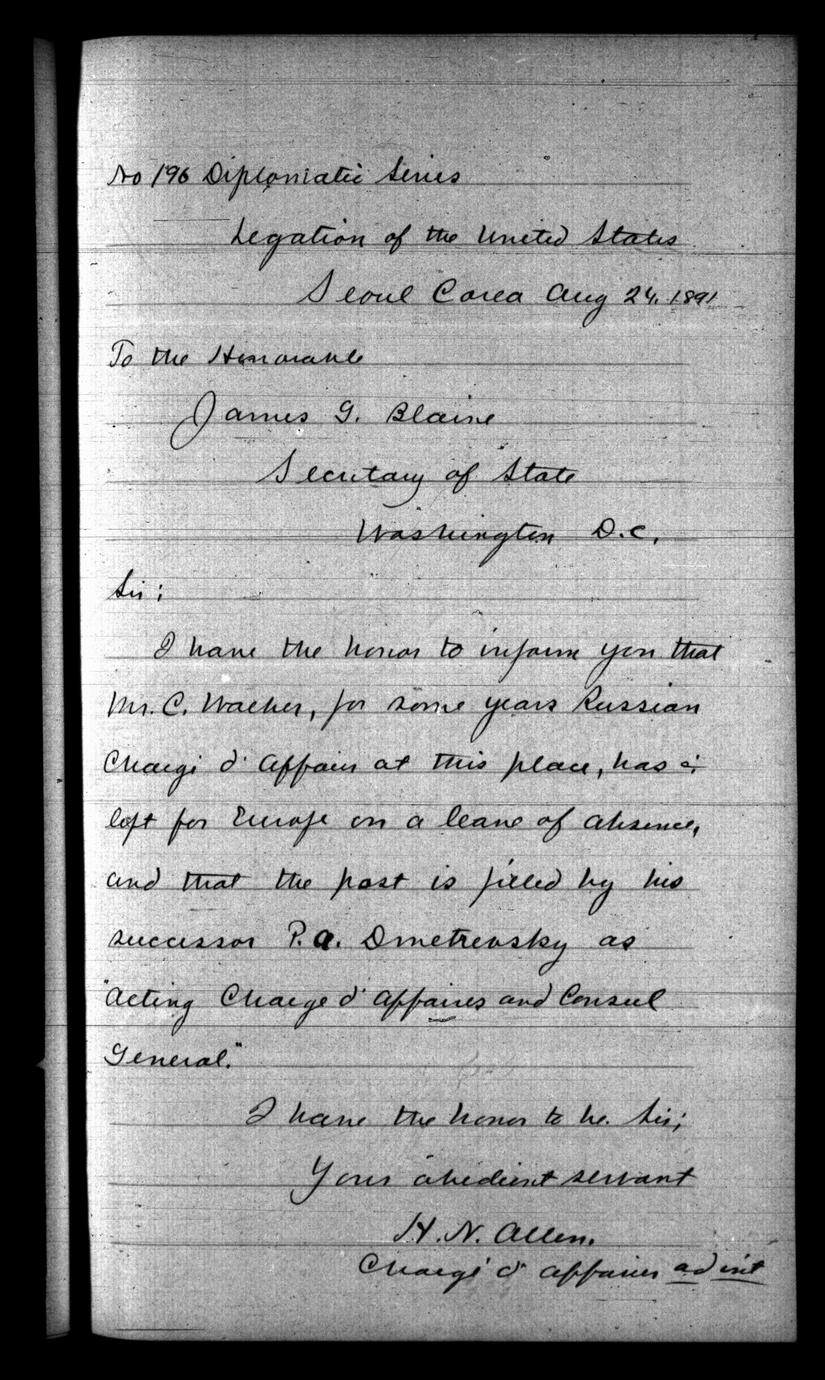 No 196 Diplomatic Series
Legation of the United States
Seoul Corea Aug 24. 1891
To the Honorable
James G. Blaine
Secretary of State
Washington D.C.
Sir;
I have the honor to inform you that
Mr. C. Waeber, for some years Russian
Chargé d' Affairs at this place, has
left for Europe on a leave of absence,
and that the post is filled by his
successor P. A. Dmetrevsky as
"Acting Chargé d' Affaires and Consul
General."
I have the honor to be. Sir;
Your obedient servant
H. N. Allen.
Chargé d' affaires ad int